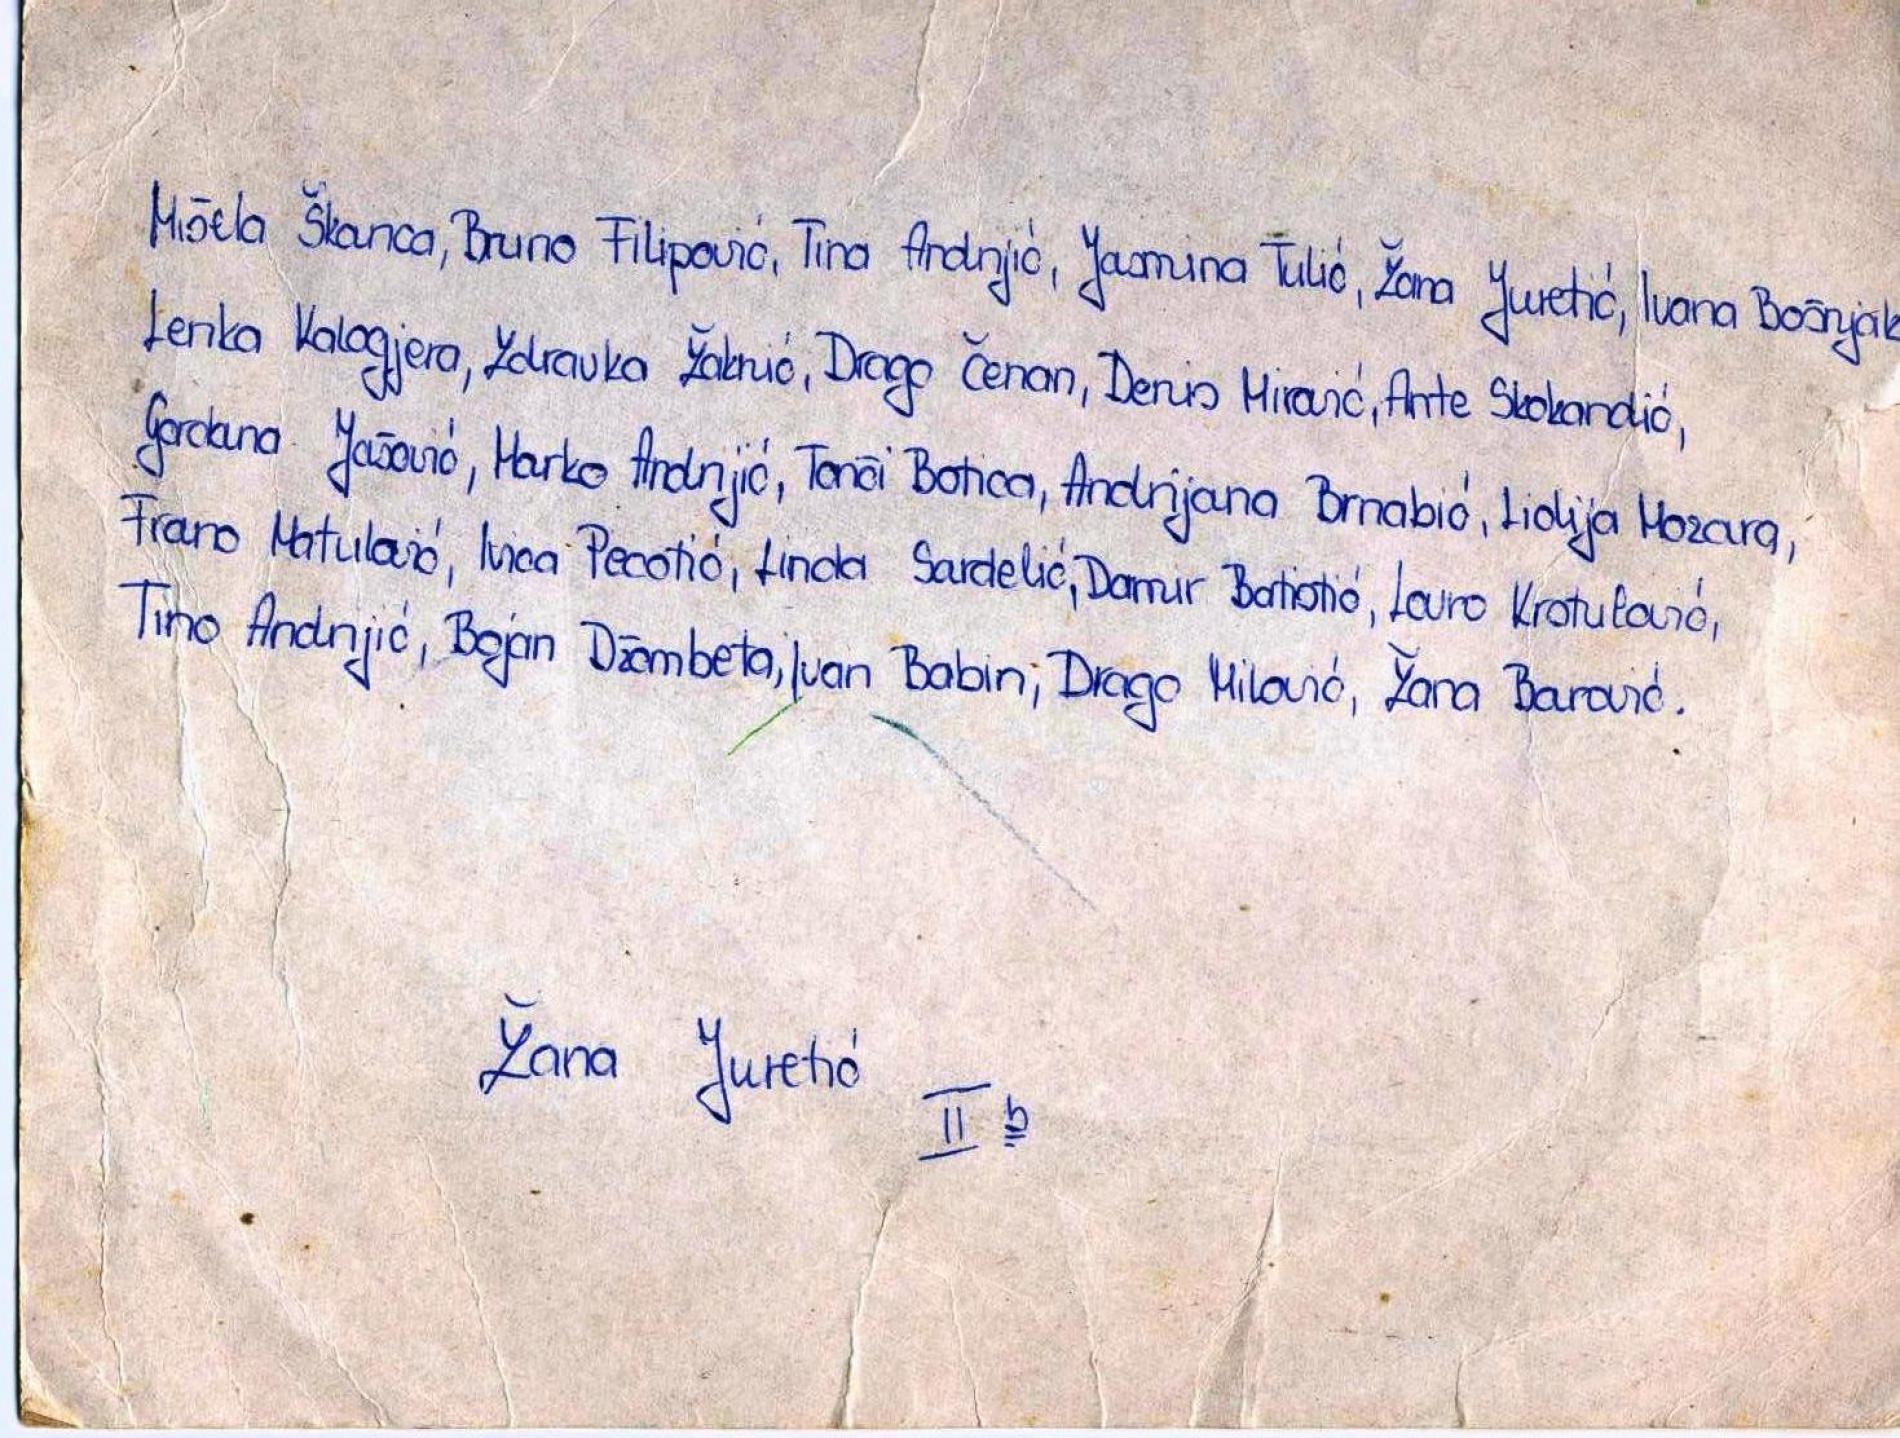 Mišela Škanca, Bruno Filipović, Tina Andrijić, Jasmina Tulić, Žana Juretić, Ivana Bošnjak
Lenka Kalogjera, Zdravka Žaknić, Drago Čenan, Denis Mirović, Ante Skokandić,
Gordana Jašović, Marko Andrijić, Tonči Botica, Andrijana Brnabić, Lidija Mozara,
Frano Matulović, Ivica Pecotić, Linda Sardelić, Damir Batistić, Lovro Krstulović,
Tino Andrijić, Bojan Džambeta, Ivan Babin, Drago Milović, Žana Barović.
Žana Juretić
II b